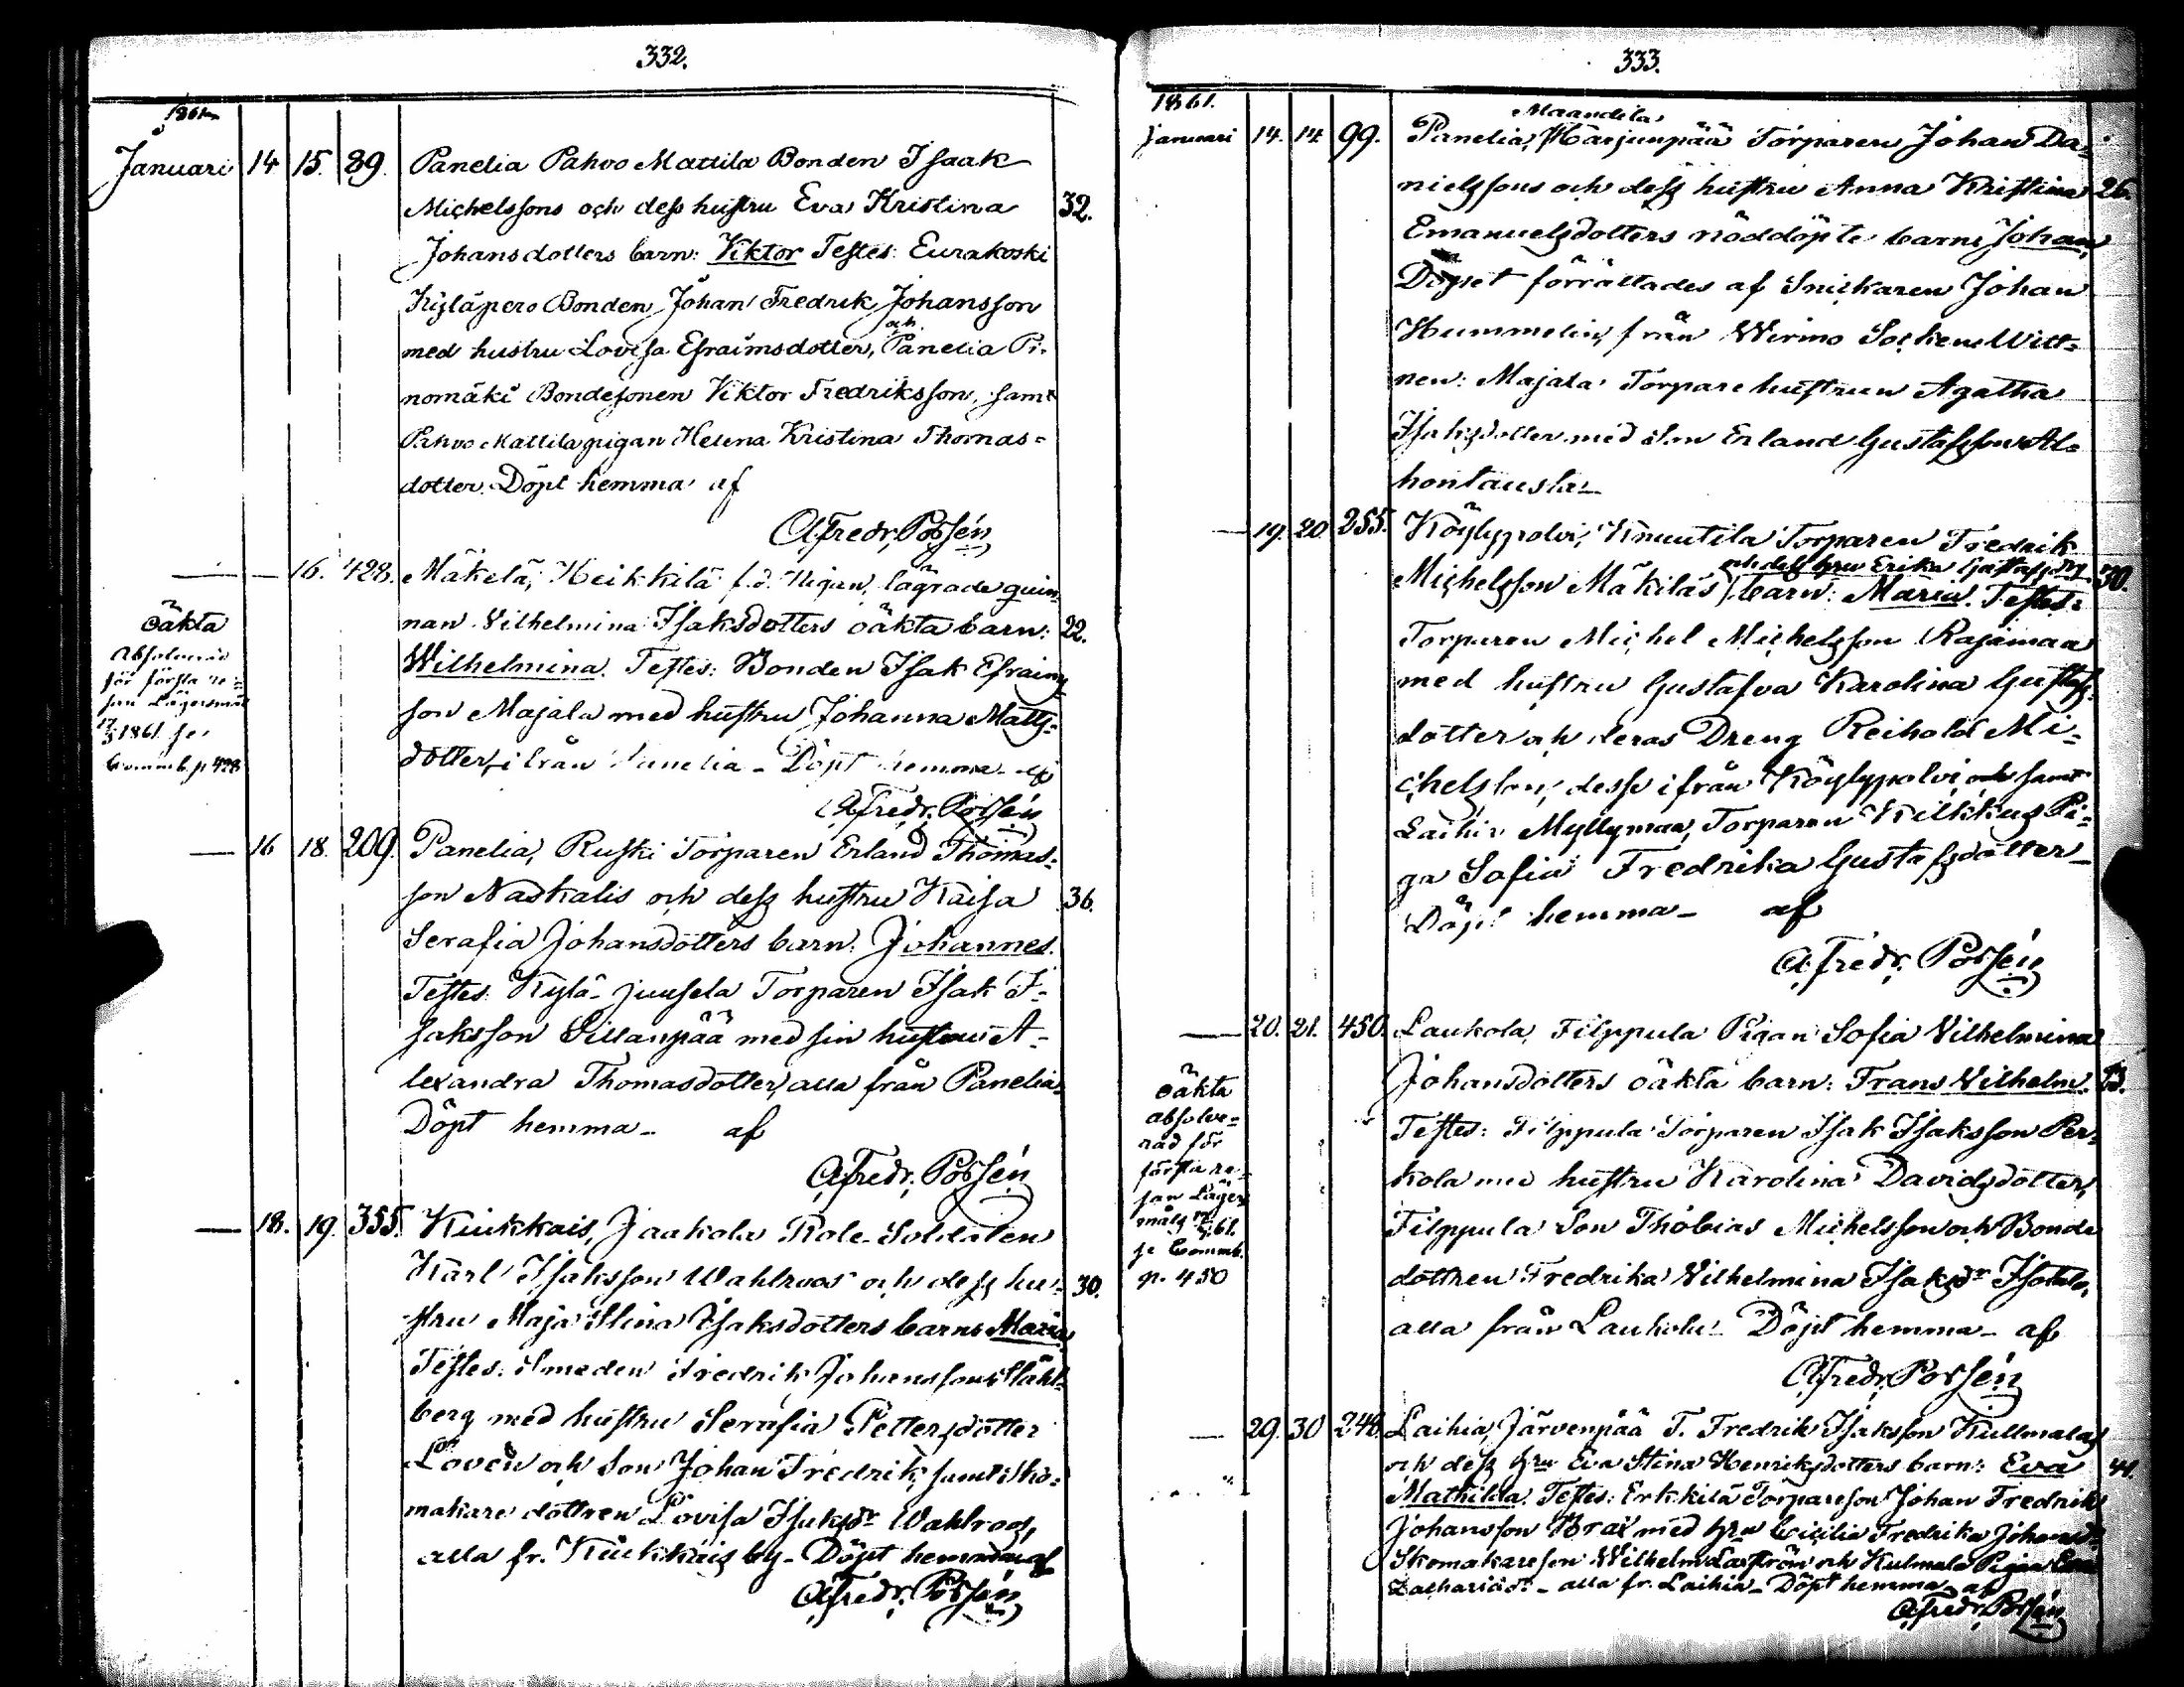 332.
1861.
Januari 14 15. 89. Panelia Pahvo Mattila Bonden Isaak
Michelssons och dess hustru Eva Kristina 32.
Johansdotters barn: Viktor Testes: Eurakoski
Kyläpero Bonden Johan Fredrik Johansson
och
med hustru Lovisa Efraimsdotter, Panelia Pi-
nomäki Bondesonen Viktor Fredriksson, samt
Pahvo Mattila pigan Helena Kristina Thomas=
dotter. Döpt hemma af
A. Fredr. Possén
— — 16. 428. Mäkelä, Heikkilä f.d. Pigan, lägrade quin-
nan Vilhelmina Isaksdotters oäkta barn: 22.
Wilhelmina. Testes: Bonden Isak Efraims
son Majala med hustru Johanna Matts=
dotter, ifrån Panelia - Döpt hemma af
A. Fredr. Possén
oäkta
Absolverad
för första re=
san Lägersmål
1861. se
Commb. p 428
— 16 18. 209. Panelia, Ruski Torparen Erland Thomas-
son Naskalis och dess hustru Kaisa 36.
Serafia Johansdotters barn: Johannes.
Testes: Kylä-Juusela Torparen Isak I-
saksson Sillanpää med sin hustru A-
lexandra Thomasdotter, alla från Panelia
Döpt hemma - af
A. Fredr. Possén
— 18. 19. 355. Kiukkais, Jaakola Role-Soldaten
Karl Isaksson Wahlroos och dess hu- 30.
stru Maja Stina Isaksdotters barn: Maria
Testes: Smeden Fredrik Johansson Ståhl-
berg med hustru Serafia Pettersdotter
Lovén och Son Johan Fredrik, samt Sko-
makare dottren Lovisa Isaksdr Wahlroos,
alla fr. Kiukkais by - Döpt hemma af
A. Fredr. Possén
333.
1861.
Maandila
Januari 14. 14 99. Panelia, Harjunpää Torparen Johan Da=
nielssons och dess hustru Anna Kristina 26.
Emanuelsdotters nöddöpte barn: Johan,
Döpset förrättades af Snickaren Johan
Hummelin, från Wirmo Socken Witt=
nen: Majala Torpare hustrun Agatha
Isaksdotter med Son Erland Gustafsson Al=
hontausta -
— 19. 20. 255. Köylypolvi, Knuutila Torparen Fredrik
och dess hru Erika Gustafsdrs
Michelsson Mäkiläs barn: Maria. Testes: 30.
Torparen Michel Michelsson Rajamaa
med hustru Gustafva Karolina Gustafs-
dotter och deras Dreng Reihold Mi-
chelsson, desse ifrån Köylypolvi och samt
Laihia Myllymaa, Torparen Kilkkus Pi-
ga Sofia Fredrika Gustafsdotter -
Döpt hemma - af
A. Fredr. Possén
— 20. 21. 450. Laukola, Filppula Pigan Sofia Vilhelmina
Johansdotters oäkta barn: Frans Vilhelm. 23.
Testes: Filppula Torparen Isak Isaksson Per-
kola med hustru Karolina Davidsdotter,
Filppula Son Thobias Michelsson och Bonde
dottren Fredrika Vilhelmina Isaksdr Isotalo,
alla från Laukola - Döpt hemma - af
A. Fredr. Possén
oäkta
absolve=
rad för
första re-
san Läger
måls
61.
se Commb.
p. 450
— 29. 30 248. Laihia, Järvenpää T. Fredrik Isaksson Kullmalas
och dess hru Eva Stina Henriksdotters barn: Eva 41.
Mathilda. Testes: Erkkilä Torpareson Johan Fredrik
Johansson Brax med hru Cicilia Fredrika Johansdr
Skomakareson Wilhelm Laström och Kulmala Pigan Eva
Zachariædr - alla fr. Laihia - Döpt hemma - af
A. Fredr. Possén